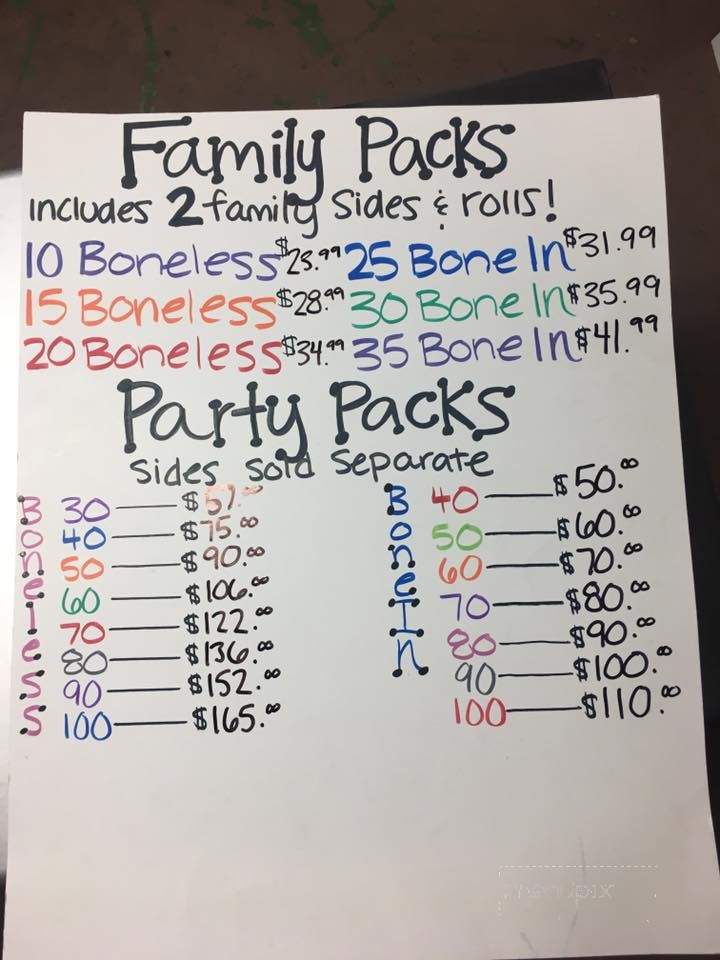 Family Packs
includes 2 family sides & rolls!
10 Boneless $23.99 25 Bone In $31.99
15 Boneless $28.99 30 Bone In $35.99
20 Boneless $34.99 35 Bone In $41.99
Party Packs
sides sold separate
Boneless
30 — $57.00
40 — $75.00
50 — $90.00
60 — $106.00
70 — $122.00
80 — $136.00
90 — $152.00
100 — $165.00
Bone In
40 — $50.00
50 — $60.00
60 — $70.00
70 — $80.00
80 — $90.00
90 — $100.00
100 — $110.00